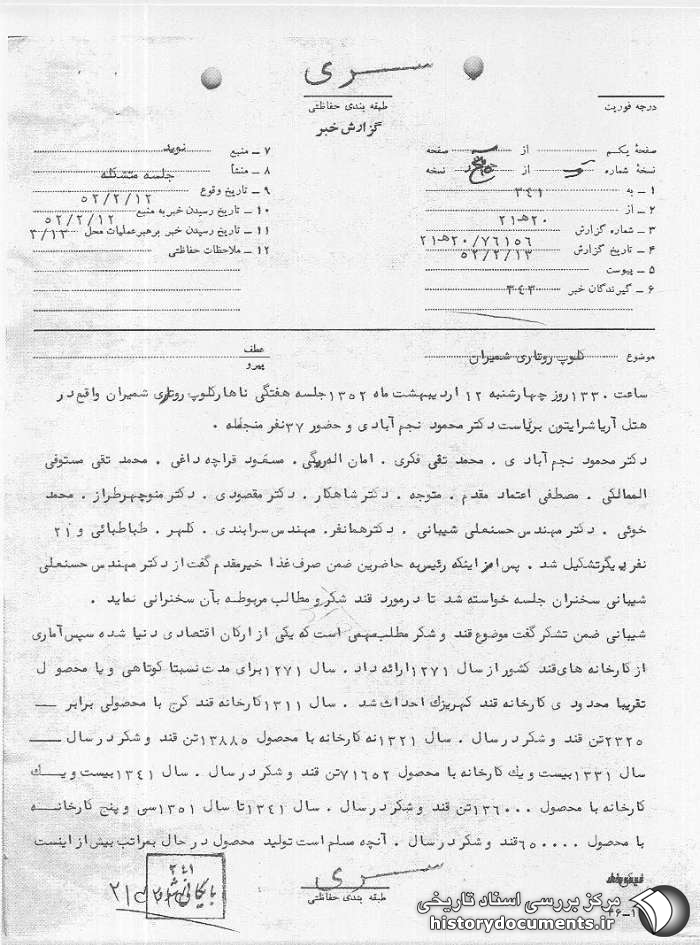 سری
طبقه بندی حفاظتی
درجه فوریت
گزارش خبر
صفحهٔ یکم از سه صفحه
نسخهٔ شماره از نسخه
۱ ــ به ۳۴۱
۲ ــ از ۲۰هـ۲۱
۳ ــ شماره گزارش ۷۶۱۵۶/۲۰هـ۲۱
۴ ــ تاریخ گزارش ۵۲/۲/۱۳
۵ ــ پیوست
۶ ــ گیرندگان خبر ۳۴۳
۷ ــ منبع نوید
۸ ــ منشأ جلسه متشکله
۹ ــ تاریخ وقوع ۵۲/۲/۱۲
۱۰ ــ تاریخ رسیدن خبر به منبع ۵۲/۲/۱۲
۱۱ ــ تاریخ رسیدن خبر برهبر عملیات محل ۲/۱۳
۱۲ ــ ملاحظات حفاظتی
موضوع کلوپ روتاری شمیران
عطف
پیرو
ساعت ۱۳۳۰روز چهارشنبه ۱۲ اردیبهشت ماه ۱۳۵۲جلسه هفتگی ناهار کلوپ روتاری شمیران واقع در
هتل آریا شرایتون بریاست دکتر محمود نجم آبادی و حضور ۳۷نفر منجمله .
دکتر محمود نجم آباد ی . محمد تقی فکری . امان اله ریگی . مسعود قراچه داغی . محمد تقی مستوفی
الممالکی . مصطفی اعتماد مقدم . متوجه . دکتر شاهکار . دکتر مقصودی . دکتر منوچهر طراز . محمد
خوئی . دکتر مهندس حسنعلی شیبانی . دکتر همانفر. مهندس سرابندی . کلهر . طباطبائی و ۲۱
نفر دیگر تشکیل شد . پس از اینکه رئیس به حاضرین ضمن صرف غذا خیر مقدم گفت از دکتر مهندس حسنعلی
شیبانی سخنران جلسه خواسته شد تا در مورد قند شکر و مطالب مربوطه بآن سخنرانی نماید .
شیبانی ضمن تشکر گفت موضوع قند و شکر مطلب مهمی است که یکی از ارکان اقتصادی دنیا شده سپس آماری
از کارخانه های قند کشور از سال ۱۲۷۱ ارائه داد . سال ۱۲۷۱ برای مدت نسبتا کوتاهی و با محصو ل
تقریبا محدود ی کارخانه قند کهریزک احداث شد . سال ۱۳۱۱کارخانه قند کرج با محصولی برابر ــ
۲۳۲۵تن قند و شکر در سال . سال ۱۳۲۱ نه کارخانه با محصول ۱۳۸۸۵تن قند و شکر در سال ــ
سال ۱۳۳۱ بیست و یک کارخانه با محصول ۷۱۶۵۲تن قند و شکر در سال . سال ۱۳۴۱بیست و یک
کارخانه با محصول ۱۳۶۰۰۰تن قند و شکر در سال . سال ۱۳۴۱ تا سال ۱۳۵۱ سی و پنج کارخانه
با محصول ۶۵۰۰۰۰قند و شکر در سال . آنچه مسلم است تولید محصول در حال بمراتب بیش از اینست
سری
طبقه بندی حفاظتی
۳۴۱
بایگانی شود
مرکز بررسی اسناد تاریخی
historydocuments.ir